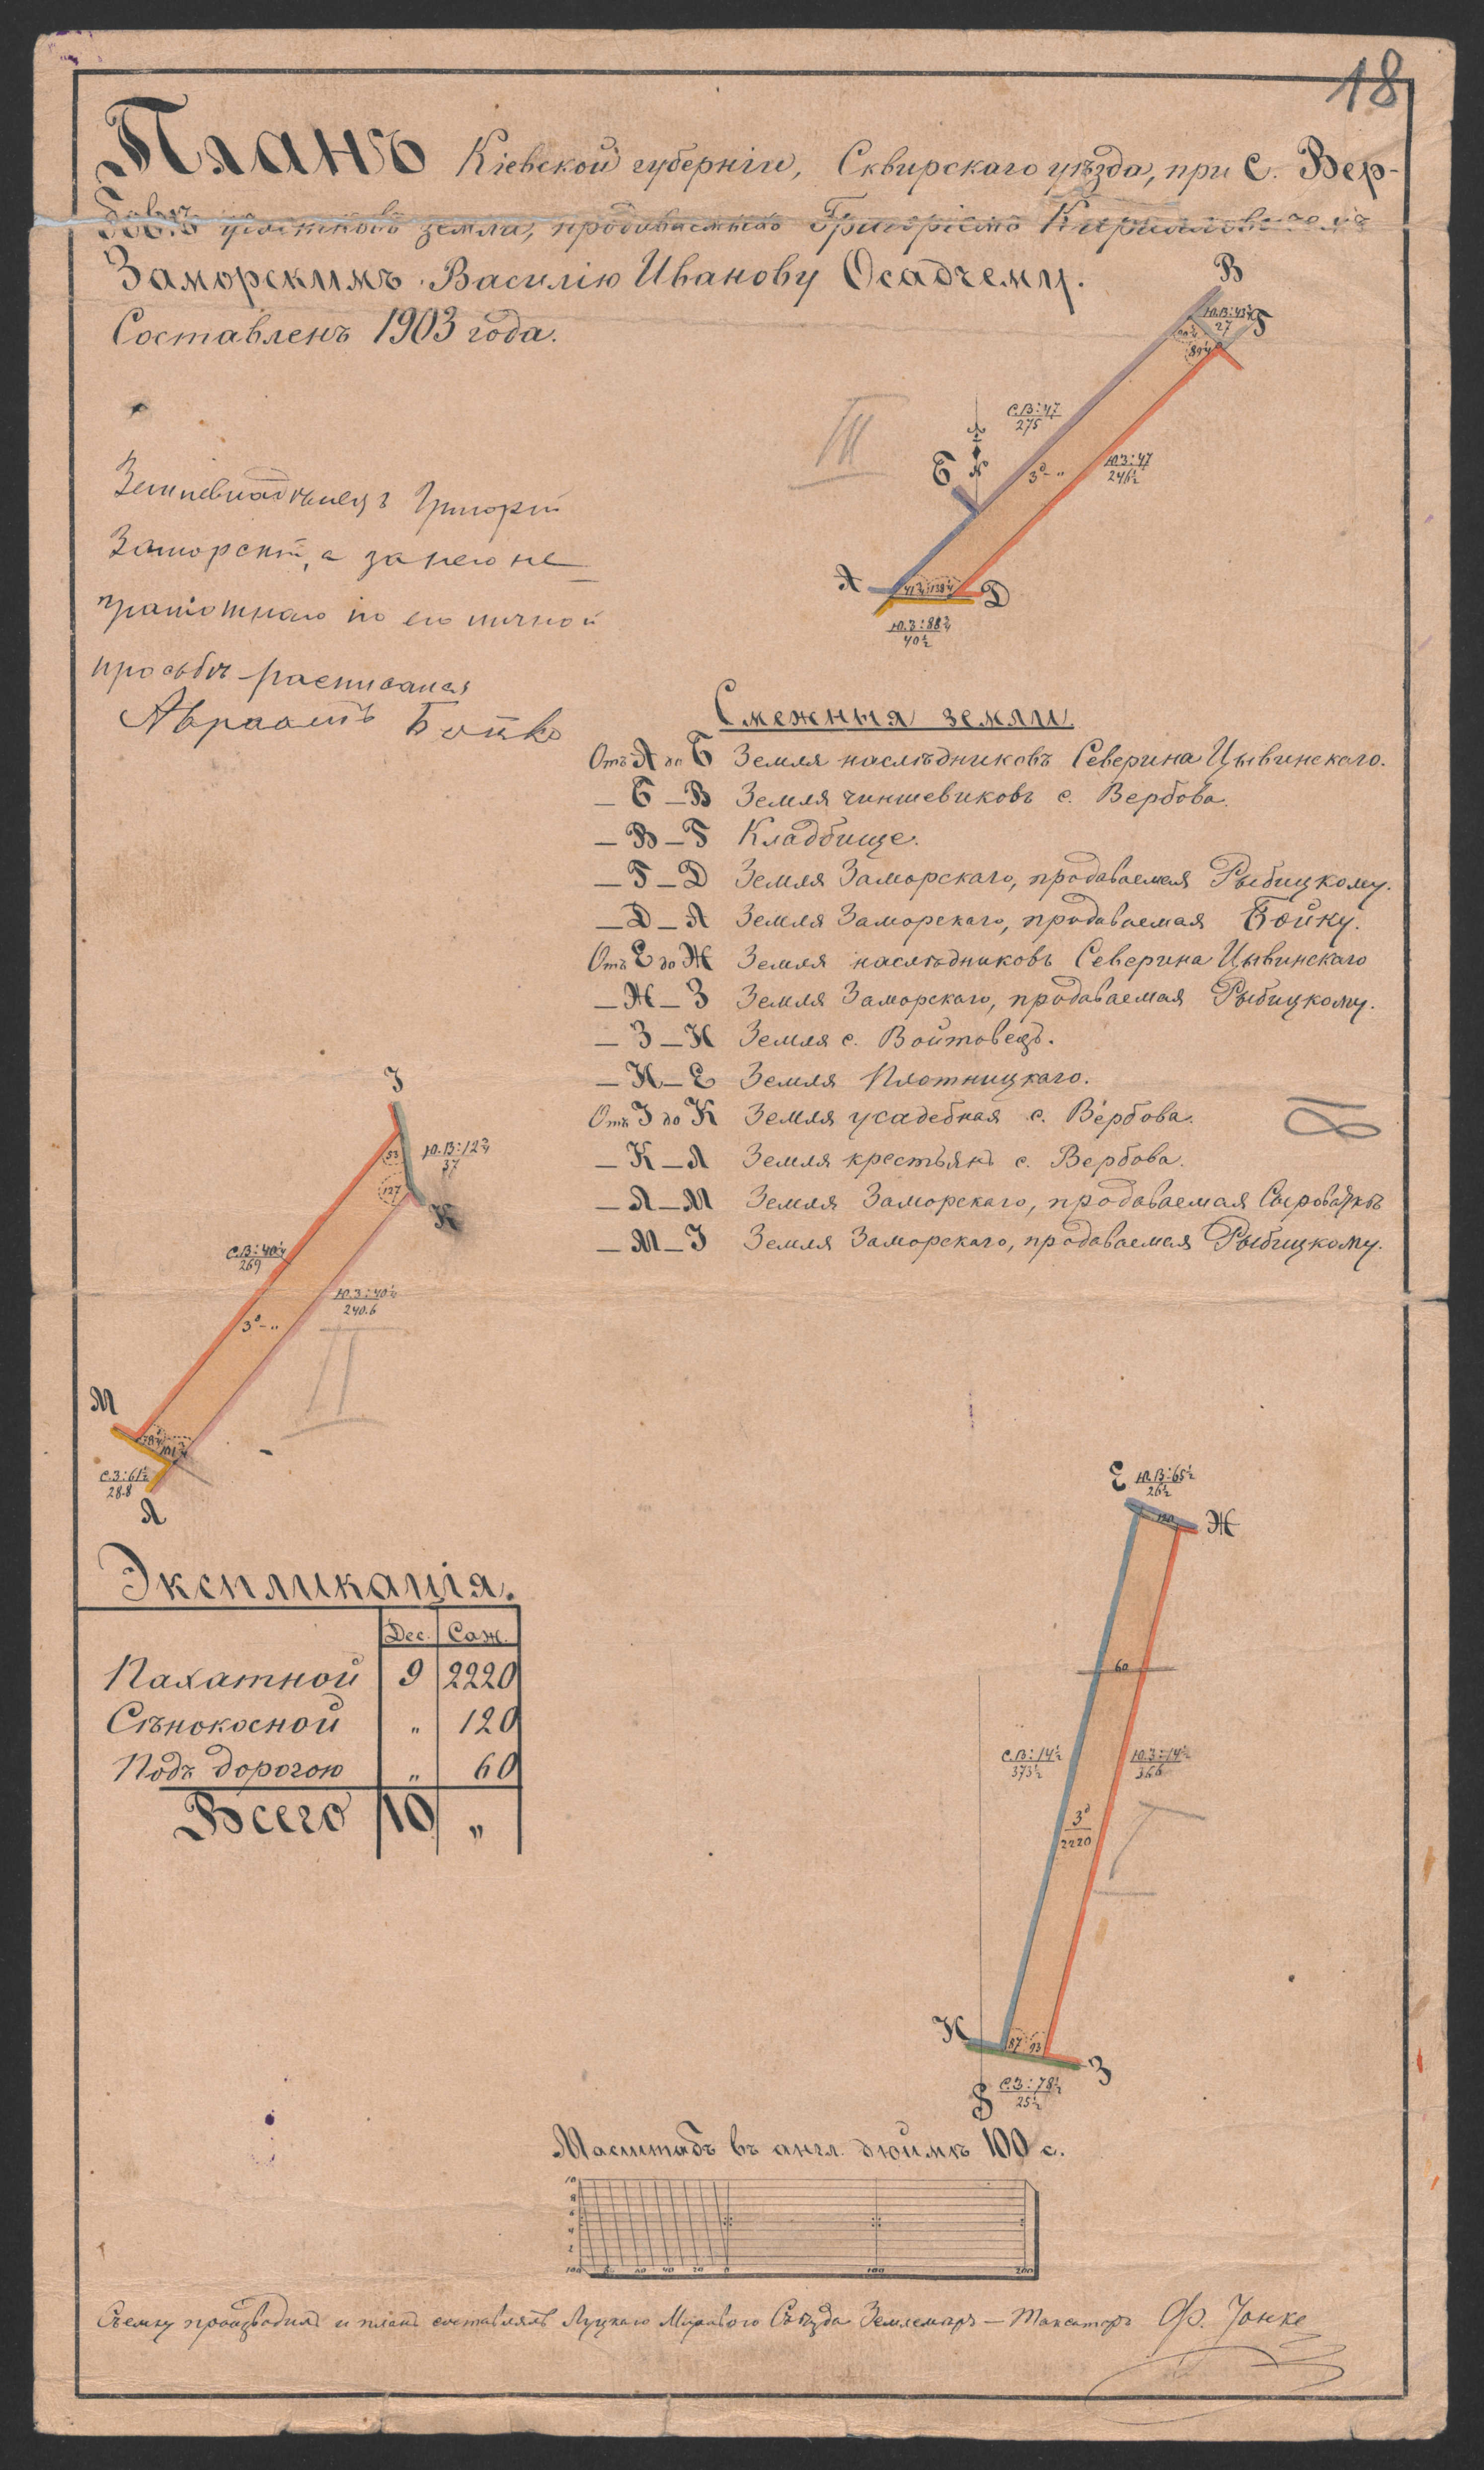 18
Планъ Кіевской губерніи, Сквирскаго уѣзда, при с. Вер-
бовѣ участковъ земли, продаваемыхъ Григоріемъ Кирилловичемъ
Заморскимъ Василію Иванову Осадчему.
Составленъ 1903 года.
Землевладѣлецъ Григорій
Заморскій, а за него не-
грамотнаго по его личной
просьбѣ росписался
Авраамъ Бойко
III
В
Ю.В:43¾
27
Г
89¼
С.В:47
275
Б
3д „
Ю.З:47
246½
А
41¾
138¼
Д
Ю.З:88¾
40½
Смежныя земли.
Отъ А до Б Земля наслѣдниковъ Северина Цывинскаго.
— Б — В Земля чиншевиковъ с. Вербова.
— В — Г Кладбище.
— Г — Д Земля Заморскаго, продаваемая Рыбицкому.
— Д — А Земля Заморскаго, продаваемая Бойку.
Отъ Е до Ж Земля наслѣдниковъ Северина Цывинскаго
— Ж — З Земля Заморскаго, продаваемая Рыбицкому.
— З — И Земля с. Войтовецъ.
— И — Е Земля Плотницкаго.
Отъ І до К Земля усадебная с. Вербова.
— К — Л Земля крестьянъ с. Вербова.
— Л — М Земля Заморскаго, продаваемая Сыроваткѣ
— М — І Земля Заморскаго, продаваемая Рыбицкому.
І
53
Ю.В:12¾
37
127
К
С.В:40½
269
Ю.З:40½
240.6
3д „
II
М
78¼
101¾
С.З:61½
28.8
Л
Е
Ю.В:65½
26½
Ж
60
С.В:14½
373½
Ю.З:14½
366
3д
2220
I
И
87
93
З
S
С.З:78½
25½
Экспликація.
Дес. Саж.
Пахатной 9 2220
Сѣнокосной „ 120
Подъ дорогою „ 60
Всего 10 „
Масштабъ въ англ. дюймѣ 100 с.
10
8
6
4
2
100 80 60 40 20 0 100 200
Съемку производилъ и планъ составлялъ Луцкаго Мирового Съѣзда Землемѣръ — Таксаторъ Ф. Іонке